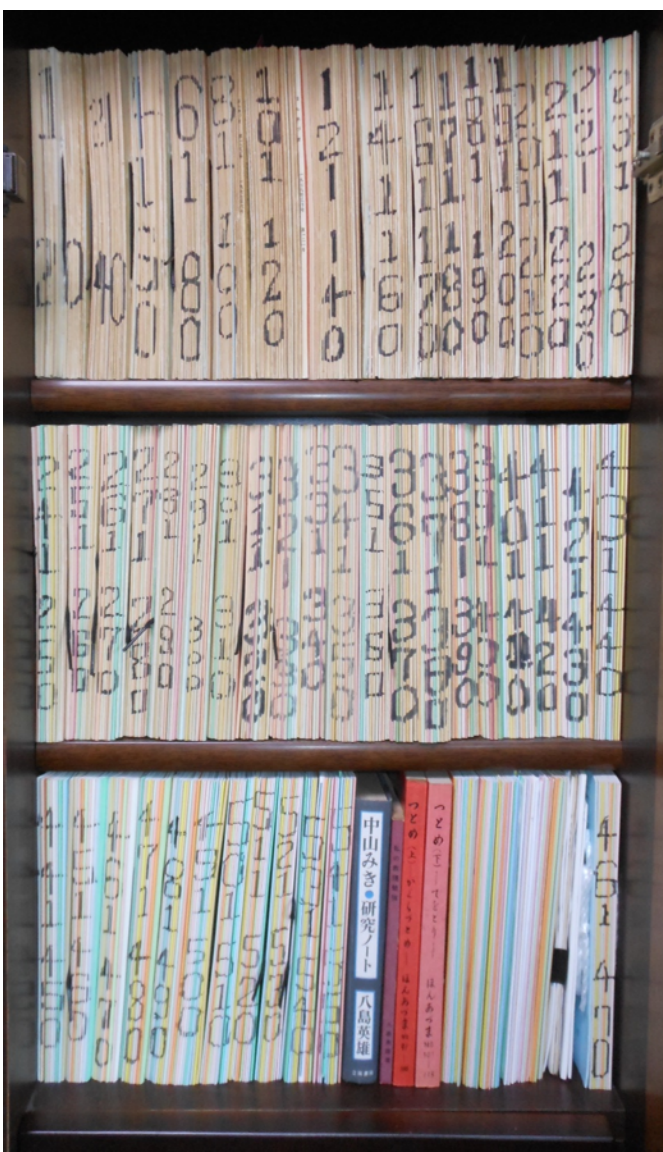 1 20
21 40
41 60
61 80
81 100
101 120
121 140
141 160
161 170
171 180
181 190
191 200
201 210
211 220
221 230
231 240
241 250
251 260
261 270
271 280
281 290
291 300
301 310
311 320
321 330
331 340
341 350
351 360
361 370
371 380
381 390
391 400
401 410
411 420
421 430
431 440
441 450
451 460
461 470
471 480
481 490
491 500
501 510
511 520
521 530
531 540
541
中山みき●研究ノート 八島英雄
つとめ(上) ほんあづま
つとめ(下) ほんあづま
461 470